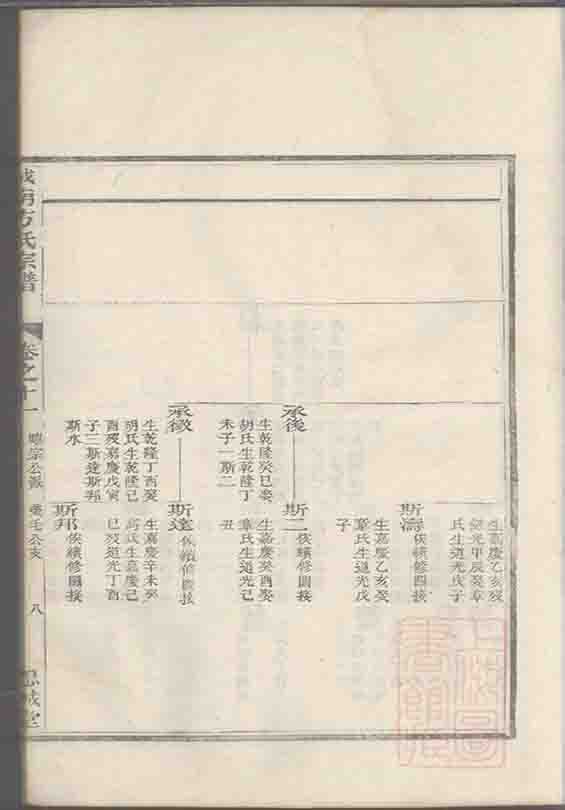 生嘉慶乙亥歿
道光甲辰娶章
氏生道光戊子
斯濤
俟續修圖接
生嘉慶乙亥娶
章氏生道光戊
子
承後
生乾隆癸巳娶
胡氏生乾隆丁
未子一斯二
斯二
俟續修圖接
生嘉慶癸酉娶
章氏生道光己
丑
承徵
生乾隆丁酉娶
胡氏生乾隆己
酉歿嘉慶戊寅
子三斯達斯邦
斯水
斯達
俟續修圖接
生嘉慶辛未娶
氏生嘉慶己
巳歿道光丁酉
斯邦
俟續修圖接
城南方氏宗譜
卷之十一
宗公派
公支
八
思誠堂
上海圖
書館藏